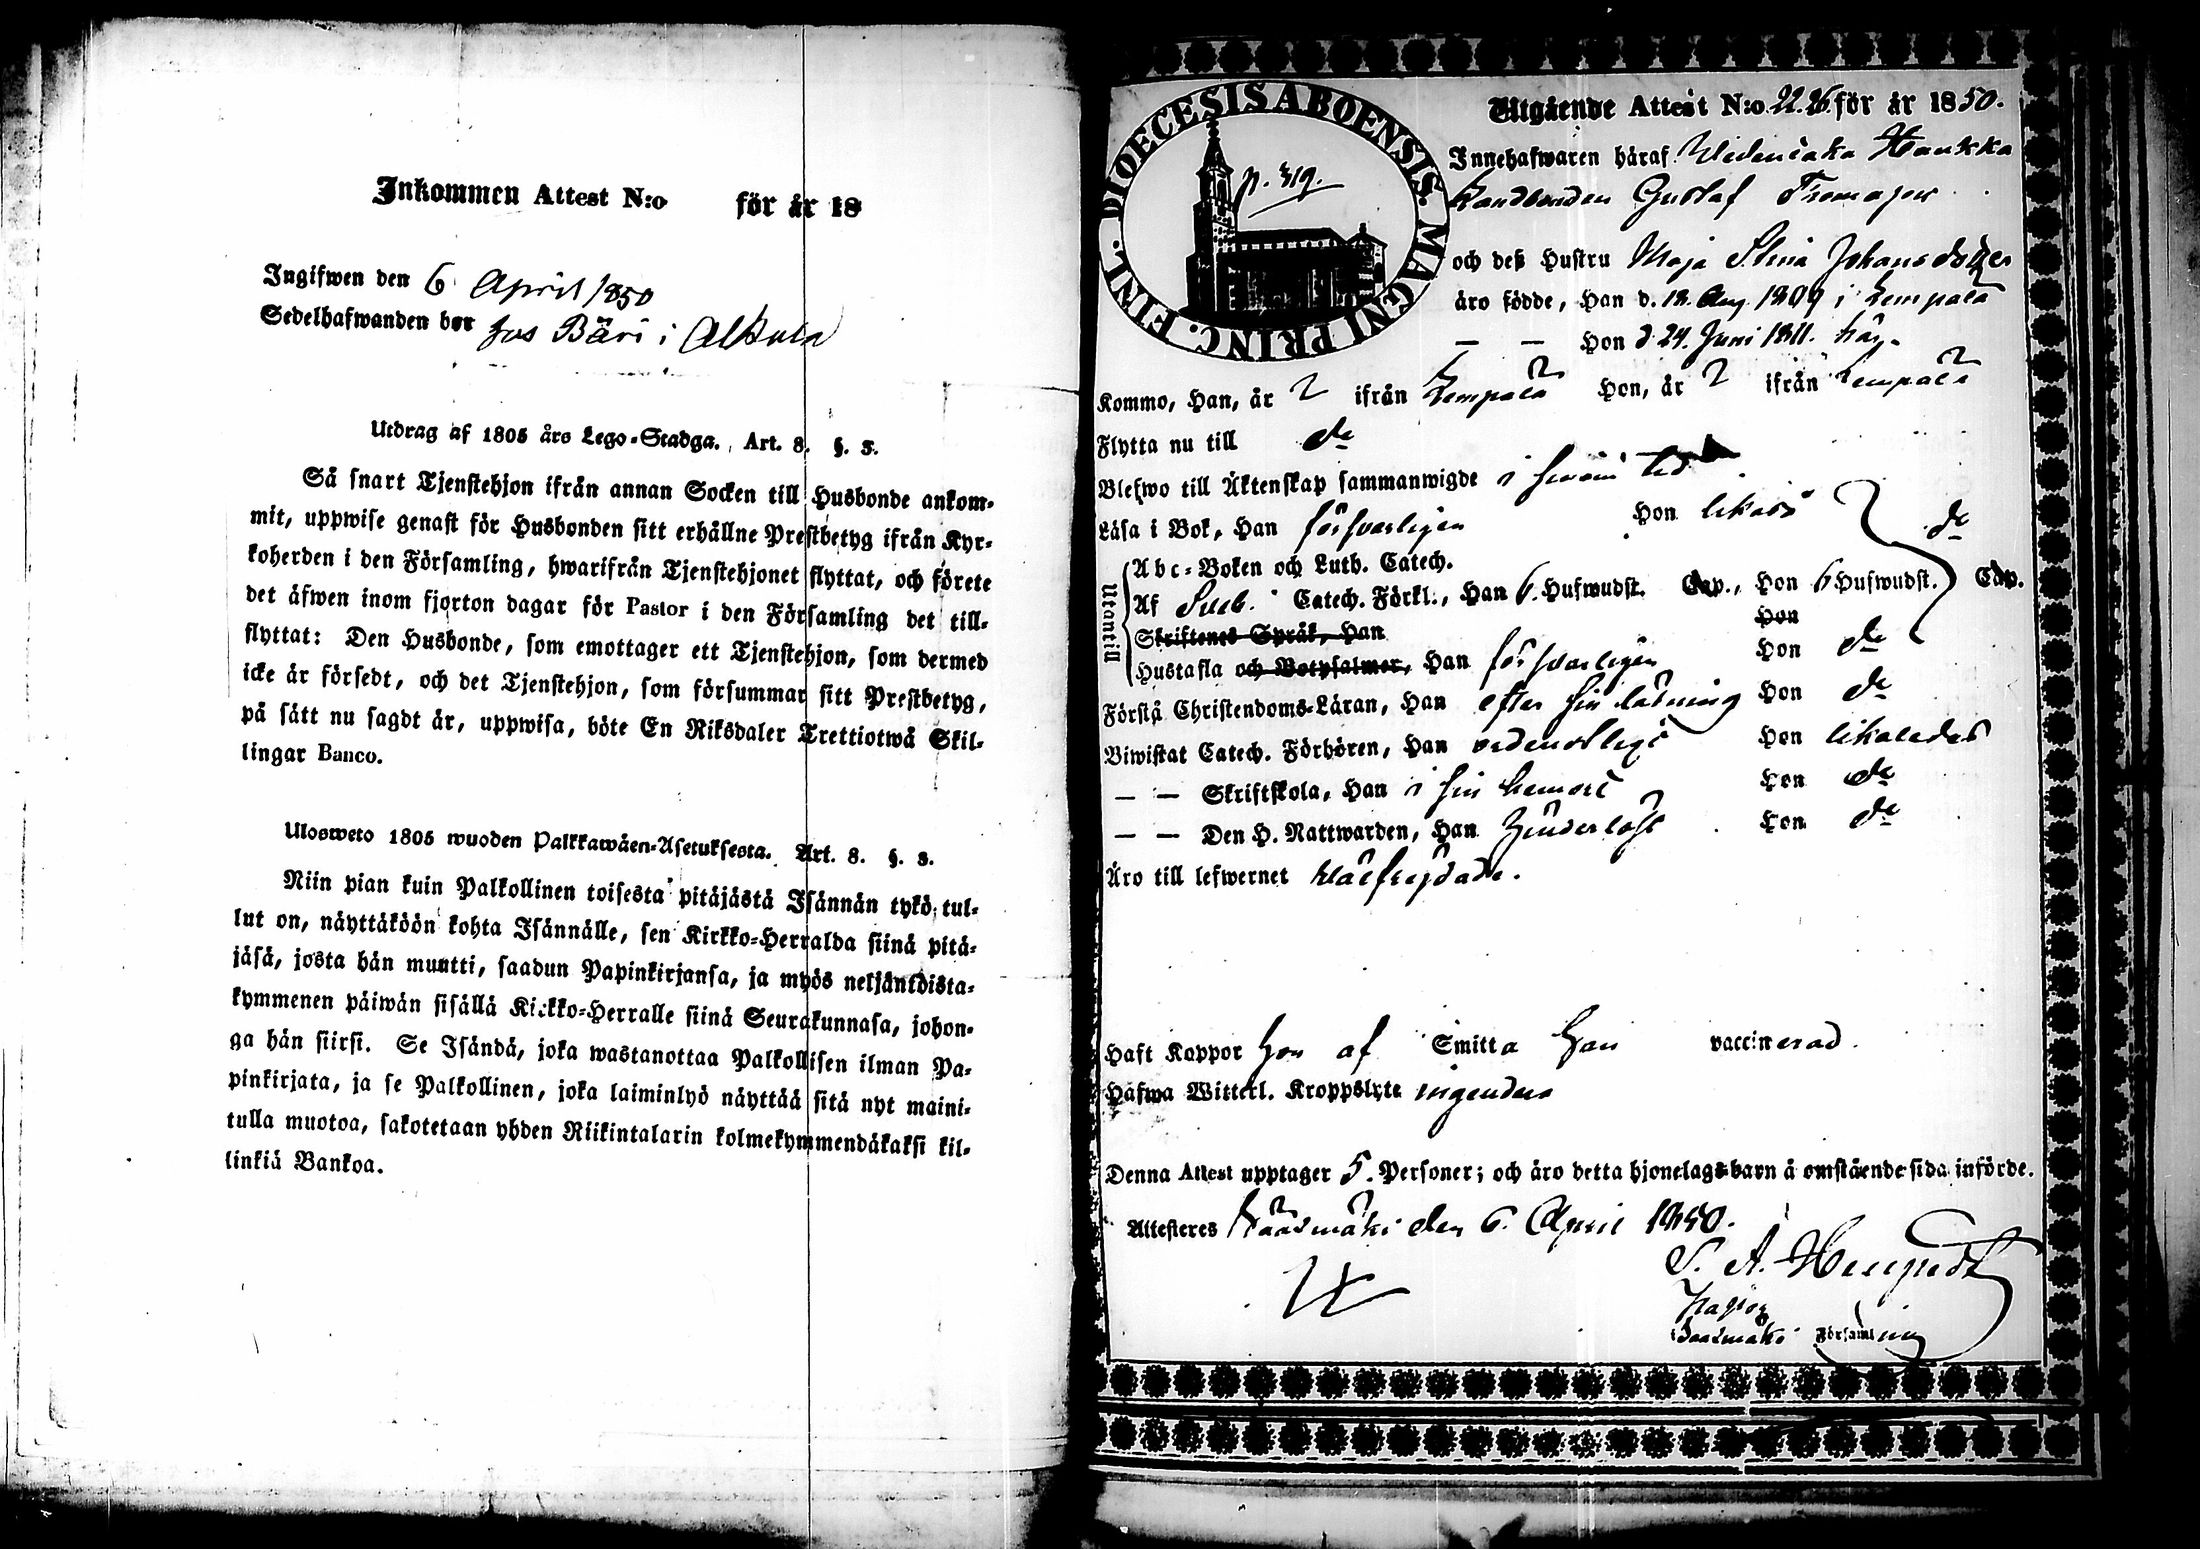 Inkommen Attest N:o för år 18
Ingifwen den 6 April 1850
Sedelhafwanden bor hos Bäri i Alkula
Utdrag af 1805 års Lego-Stadga. Art. 8. §. 3.
Så snart Tjenstehjon ifrån annan Socken till Husbonde ankom-
mit, uppwise genast för Husbonden sitt erhållne Prestbetyg ifrån Kyr-
koherden i den Församling, hwarifrån Tjenstehjonet flyttat, och förete
det äfwen inom fjorton dagar för Pastor i den Församling det till-
flyttat: Den Husbonde, som emottager ett Tjenstehjon, som dermed
icke är försedt, och det Tjenstehjon, som försummar sitt Prestbetyg,
på sätt nu sagdt är, uppwisa, böte En Riksdaler Trettiotwå Skil-
lingar Banco.
Ulosweto 1805 wuoden Palkkawäen-Asetuksesta. Art. 8. §. 3.
Niin pian kuin Palkollinen toisesta pitäjästä Isännän tykö tul-
lut on, näyttäköön kohta Isännälle, sen Kirkko-Herralda siinä pitä-
jäsä, josta hän muutti, saadun Papinkirjansa, ja myös neljäntoista-
kymmenen päiwän sisällä Kirkko-Herralle siinä Seurakunnasa, johon-
ga hän siirsi. Se Isändä, joka wastanottaa Palkollisen ilman Pa-
pinkirjata, ja se Palkollinen, joka laiminlyö näyttää sitä nyt maini-
tulla muotoa, sakotetaan yhden Riikintalarin kolmekymmendäkaksi kil-
linkiä Bankoa.
FINL. DIOECESIS ABOENSIS. MAGNI PRINC.
p. 319.
Utgående Attest N:o 22.26. för år 1850.
Innehafwaren häraf Uidensaka Haukka
Landbonden Gustaf
och deß Hustru Maja Stina Johansdotter
äro födde, Han d. 12. Aug. 1809 i Lempälä
— — Hon d 24. Juni 1811. här.
Kommo, Han, år ? ifrån Lempälä Hon, år ? ifrån Lempälä
Flytta nu till do
Blefwo till Äktenskap sammanwigde i sinom tid
Läsa i Bok, Han försvarligen Hon likaså do
Utantill
Abc-Boken och Luth. Catech.
Af Sveb. Catech. Förkl., Han 6. Hufwudst. Cap., Hon 6 Hufwudst. Cap.
Skriftenes Språk, Han Hon
Hustafla och Botpsalmer, Han försvarligen Hon do
Förstå Christendoms-Läran, Han efter sin läsning Hon do
Biwistat Catech. Förhören, Han ordentligt Hon likaledes
— — Skriftskola, Han i sin hemort Hon do
— — Den H. Nattwarden, Han hinderlöst Hon do
Äro till lefwernet wälfrejdade.
Haft Koppor Hon af Smitta Han vaccinerad.
Hafwa Witterl. Kroppslyte ingendera
Denna Attest upptager 5. Personer; och äro detta hjonelags barn å omstående sida införde.
Attesteras Sääksmäki den 6. April 1850.
Pastor
Sääksmäki Församling